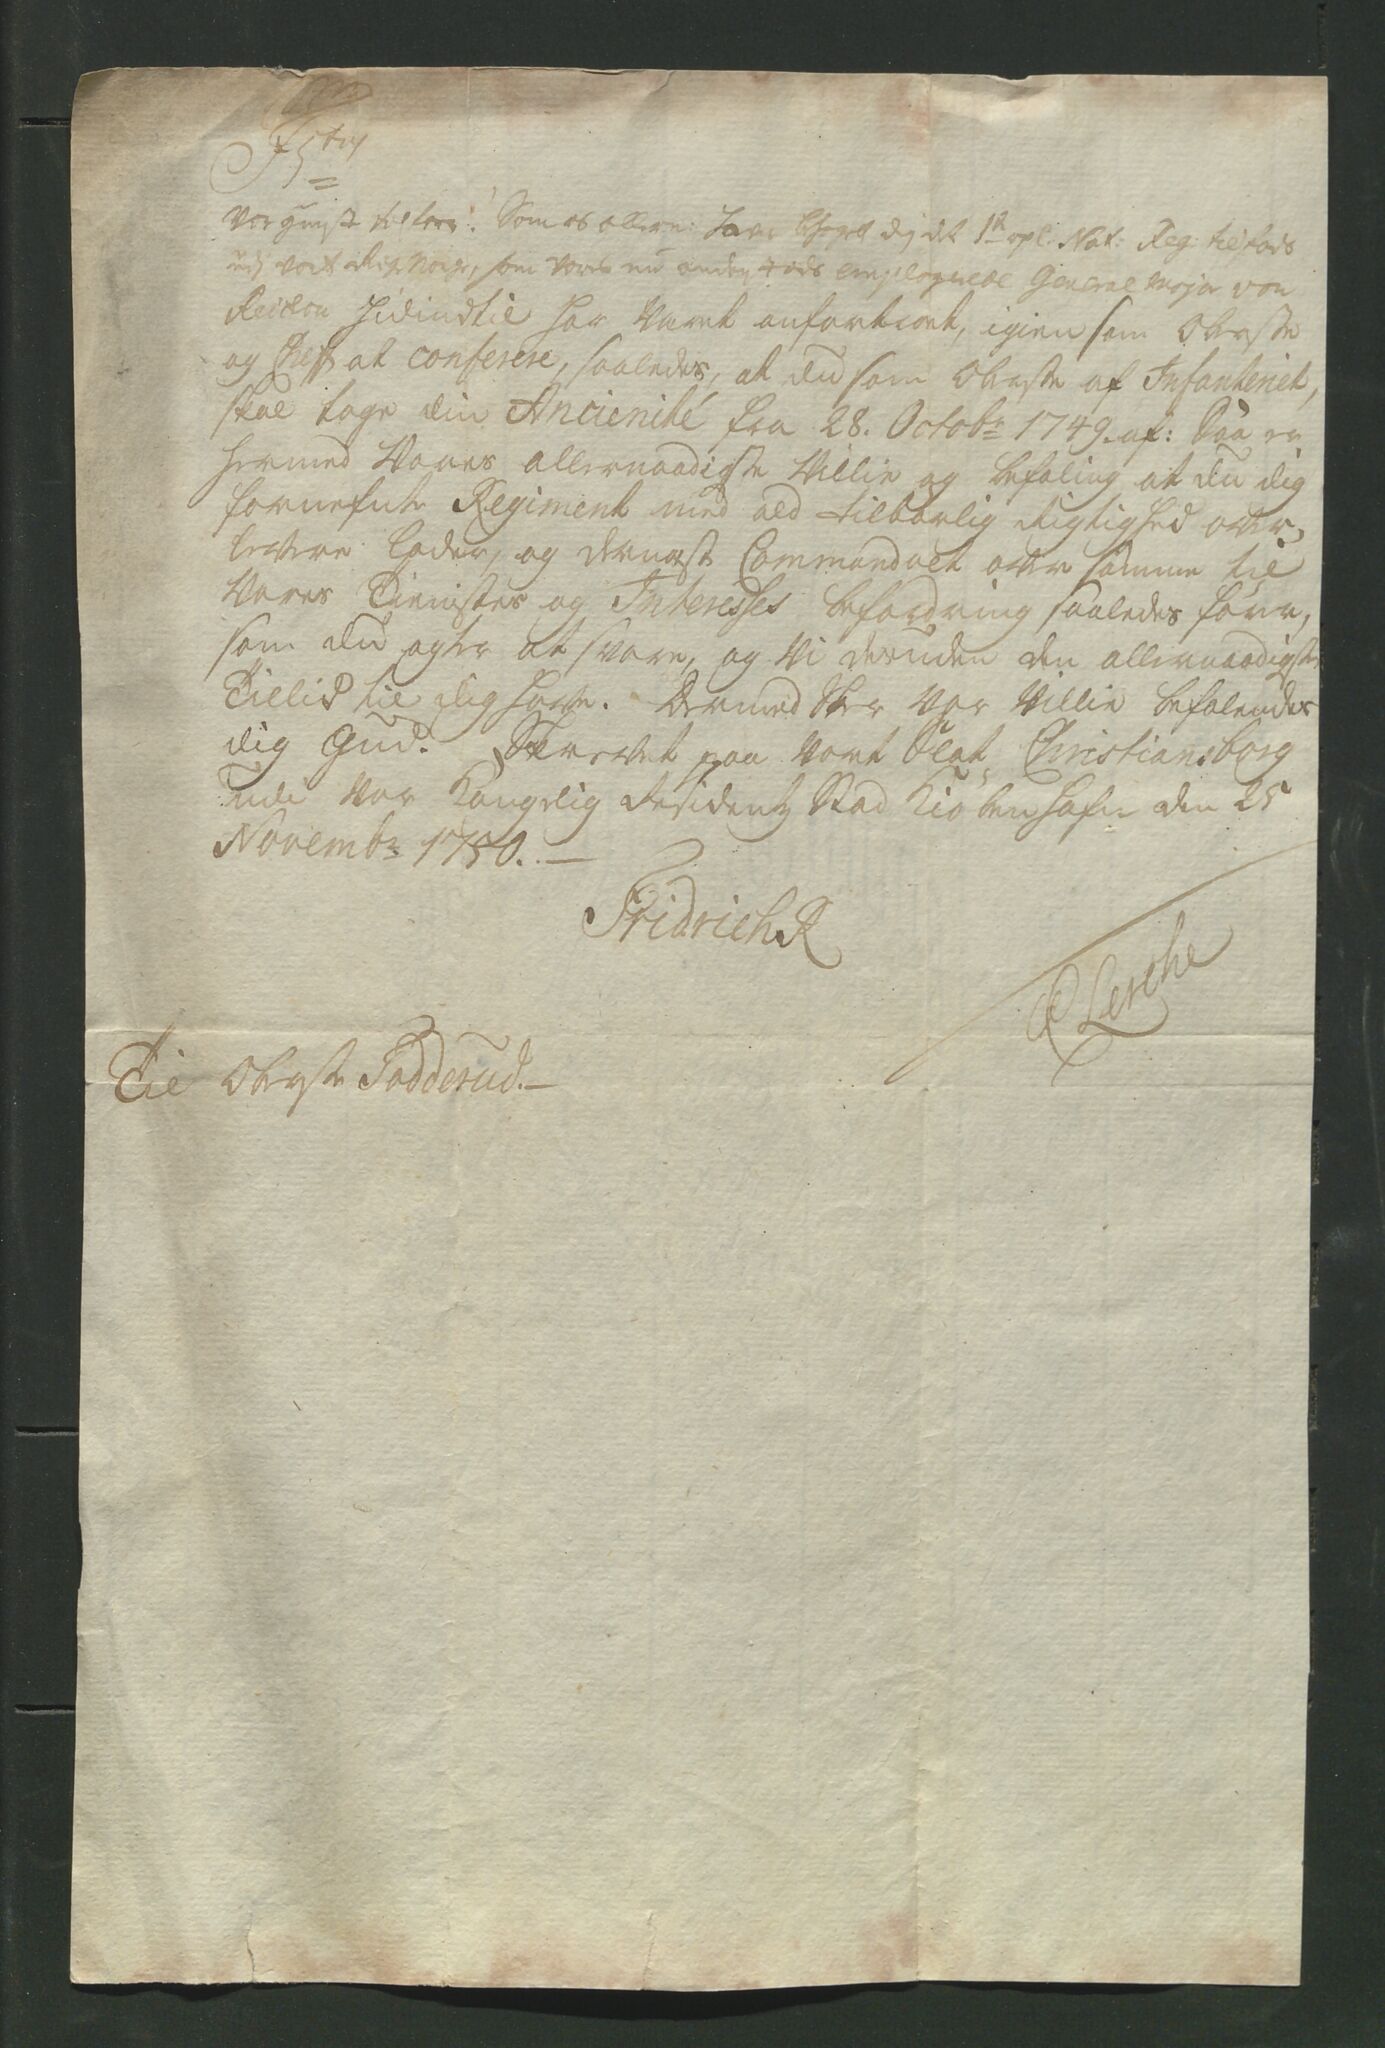 F 5ten
Vor gunst tilforn! Som vi allern: have behaget dig det 1te opl: Nat: Reg: til fods
udj vort Rige Norge, som Vores nu anden steds employerede General Major von
hidindtil har været anfortroet, igien som Oberste
og Chef at conferere, saaledes, at du som Oberste af Infanteriet,
skal tage din Ancienité fra 28. Octobr 1749. af: Saa er
hermed Vores allernaadigste Villie og befaling at du dig
fornefnte Regiment med ald tilbørlig Rigtighed over-
levere lader, og dernæst Commandoet over samme til
Vores Tienistes og Interesses befordring saaledes fører,
som du agter at svare, og Vi desuden den allernaadigste
Tillid til dig have. Dermed skeer Vor Villie befalendes
dig Gud. Skrevet paa Vort Slot Christiansborg
udi Vor Kongelig Residentz Stad Kiøbenhafn den 25
Novembr 1750.
Fridrich R
Lerche
Til Oberste Fodderud.